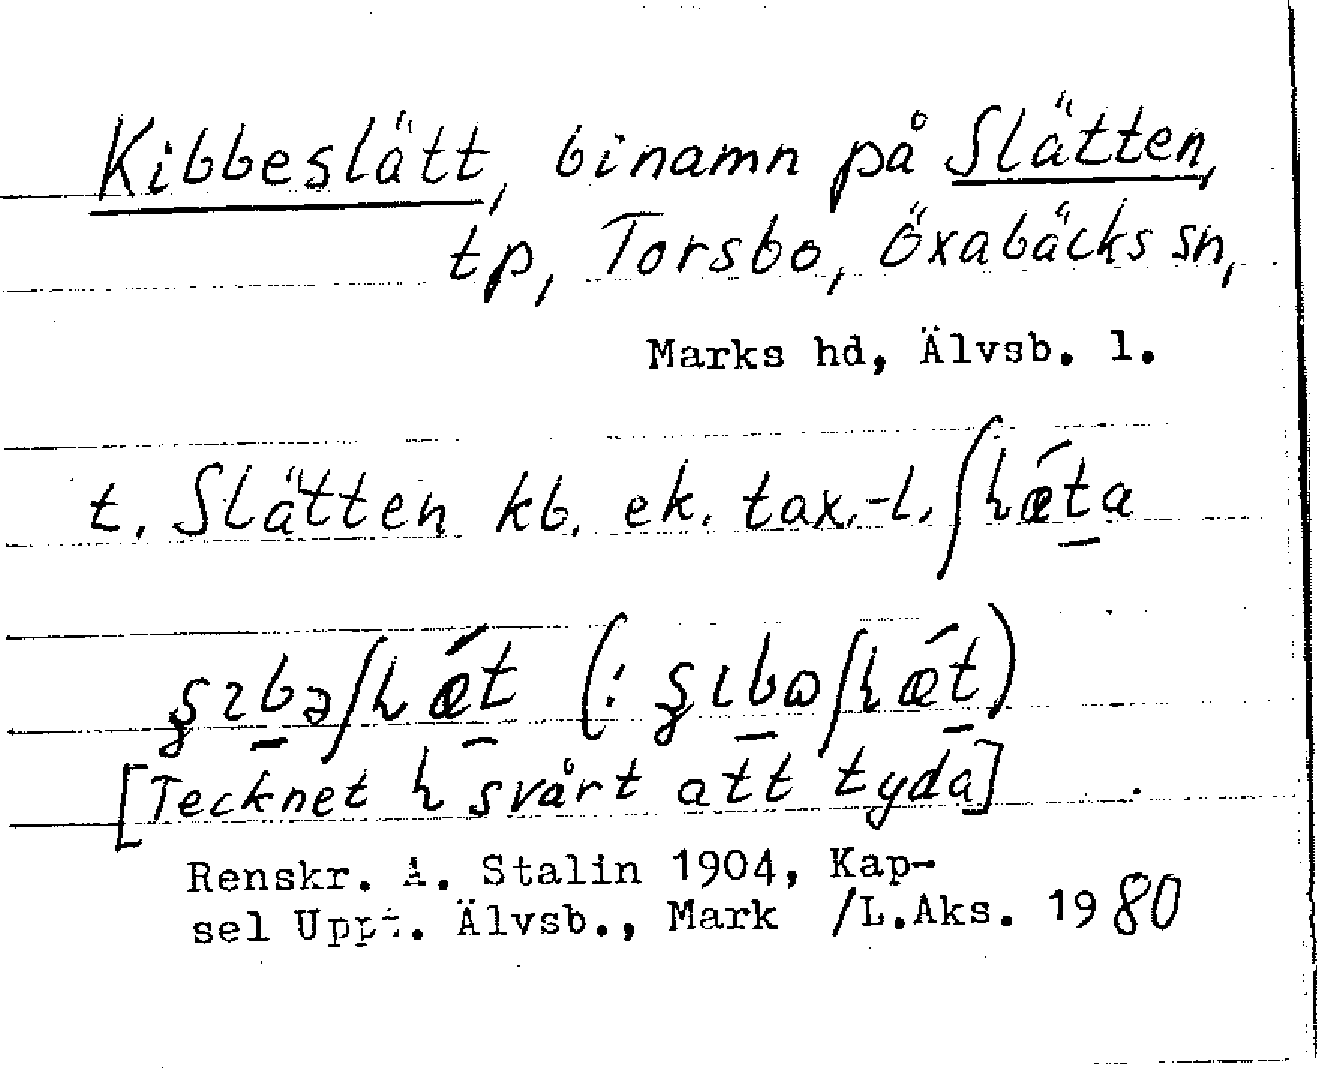 Kibbeslätt, binamn på Slätten,
tp, Torsbo, Öxabäcks sn,
Marks hd, Älvsb. l.
t. Slätten kb. ek. tax.-l. ʃhǽta
ʂɪbəʃhǽt (: ʂɩbɷʃhǽt)
[Tecknet h svårt att tyda]
Renskr. A. Stalin 1904, Kap-
sel Uppt. Älvsb., Mark /L.Aks. 1980